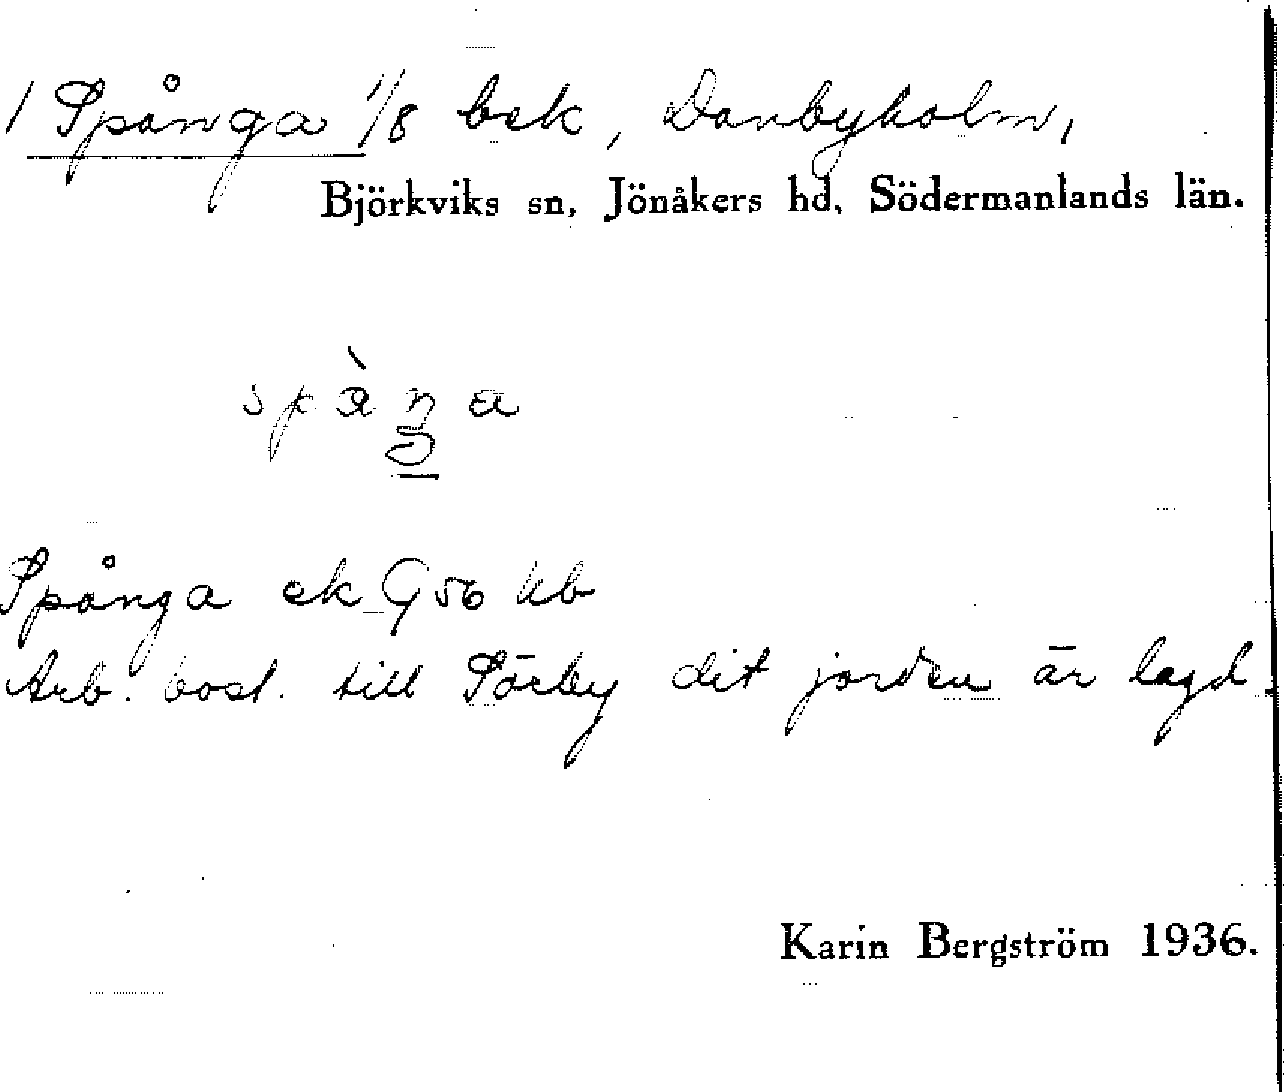 1 Spånga 1/8 bek, Danbyholm,
Björkviks sn, Jönåkers hd, Södermanlands län.
Spånga ek G 56 kb
Arb. bost. till Sörby dit jorden är lagd.
Karin Bergström 1936.